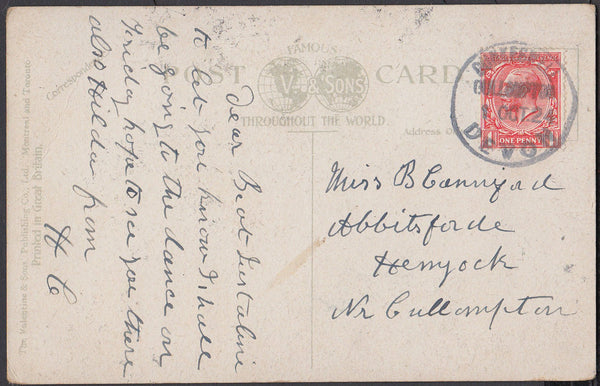 POST CARD
FAMOUS
V. & SONS
THROUGHOUT THE WORLD.
Correspond
Address O
The Valentine & Sons Publishing Co., Ltd., Montreal and Toronto
Printed in Great Britain.
Dear Beat Just a line
to let you know I shall
be going to the dance on
Friday hope to see you there
also Hilda from
H C
CULLOMPTON
OCT 24
DEVON
ONE PENNY
Miss B
Abbitsforde
Hemyock
Nr Cullompton